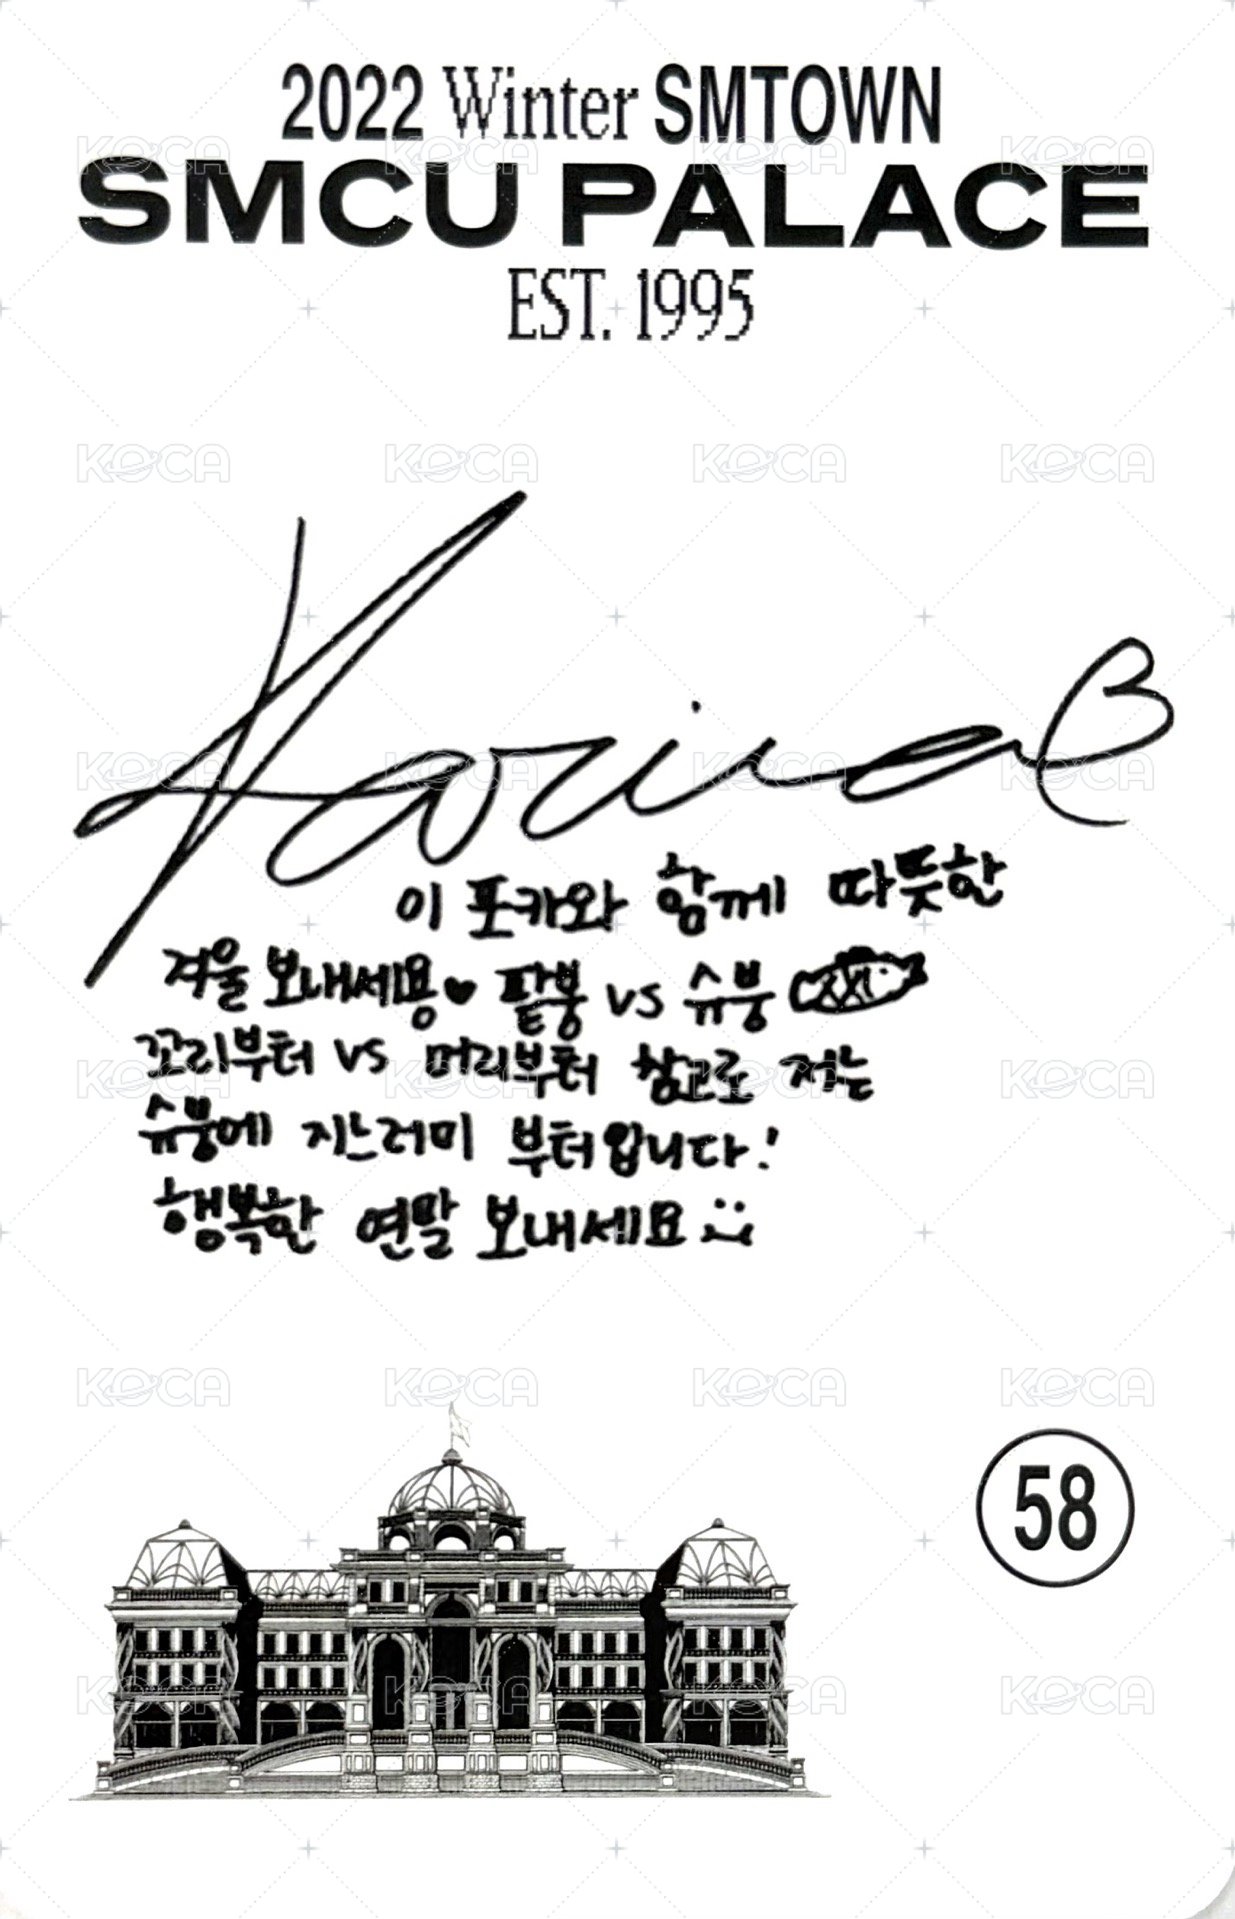 2022 Winter SMTOWN
SMCU PALACE
EST. 1995
Karina
이 포카와 함께 따뜻한
겨울 보내세용♥ 팥붕 vs 슈붕
꼬리부터 vs 머리부터 참고로 저는
슈붕에 지느러미 부터입니다!
행복한 연말 보내세요
58
KOCA